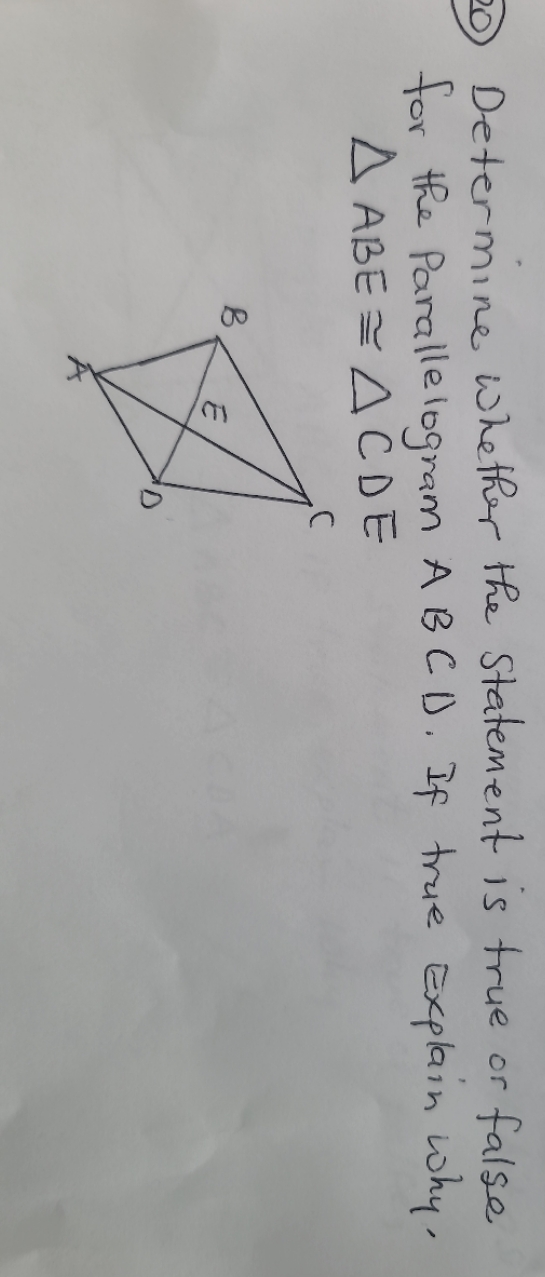 20 Determine whether the statement is true or false
for the parallelogram ABCD. If true Explain why.
△ ABE ≅ △ CDE
B
A
E
C
D